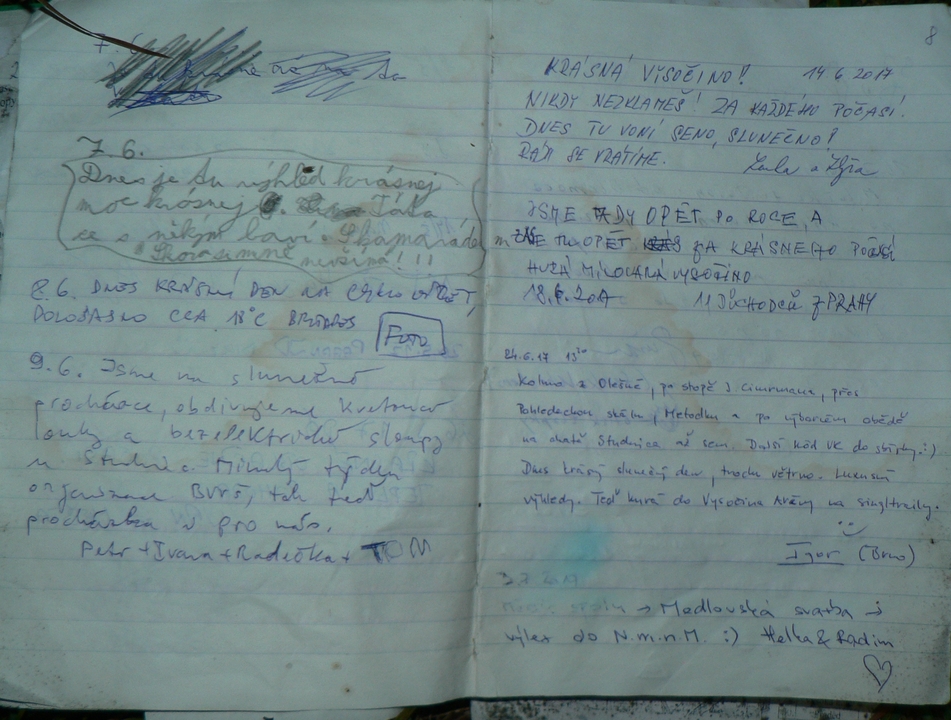 7.6.
Dnes je tu výhled krásnej
moc krásnej Táta
se s nikým baví. S kamarádem
Skoro si mně nevšímá!!!
8.6. DNES KRÁSNÝ DEN NA CYKLO VÝLET,
POLOJASNO CCA 18°C
FOTO
9.6. Jsme na slunečné
procházce, obdivujeme kvetoucí
louky a bezelektrické sloupy
u Studnic. Minulý týden
organizace BVV, tak teď
procházka i pro nás.
Petr + Ivana + Radečka + TOM
8
KRÁSNÁ VYSOČINO! 14 6 2017
NIKDY NEZKLAMEŠ! ZA KAŽDÉHO POČASÍ.
DNES TU VONÍ SENO, SLUNEČNO!
RÁDI SE VRÁTÍME.
JSME TADY OPĚT PO ROCE, A
ZASE TU OPĚT ZA KRÁSNÉHO POČASÍ
HURÁ MILOVANÁ VYSOČINO
18.6.2017 11 DŮCHODCŮ Z PRAHY
24.6.17 13
Kolmo z Olešné, po stopě J. Cimrmana, přes
Pohledeckou skálu, Metodku a po výborném obědě
na chatě Studnice až sem. Další kód VK do sbírky :)
Dnes krásný slunečný den, trochu větrno. Luxusní
výhledy. Teď hurá do Vysočina Arény na singltraily.
Igor (Brno)
→ Medlovská svatba →
výlet do N.m.n.M. :) Helka & Radim